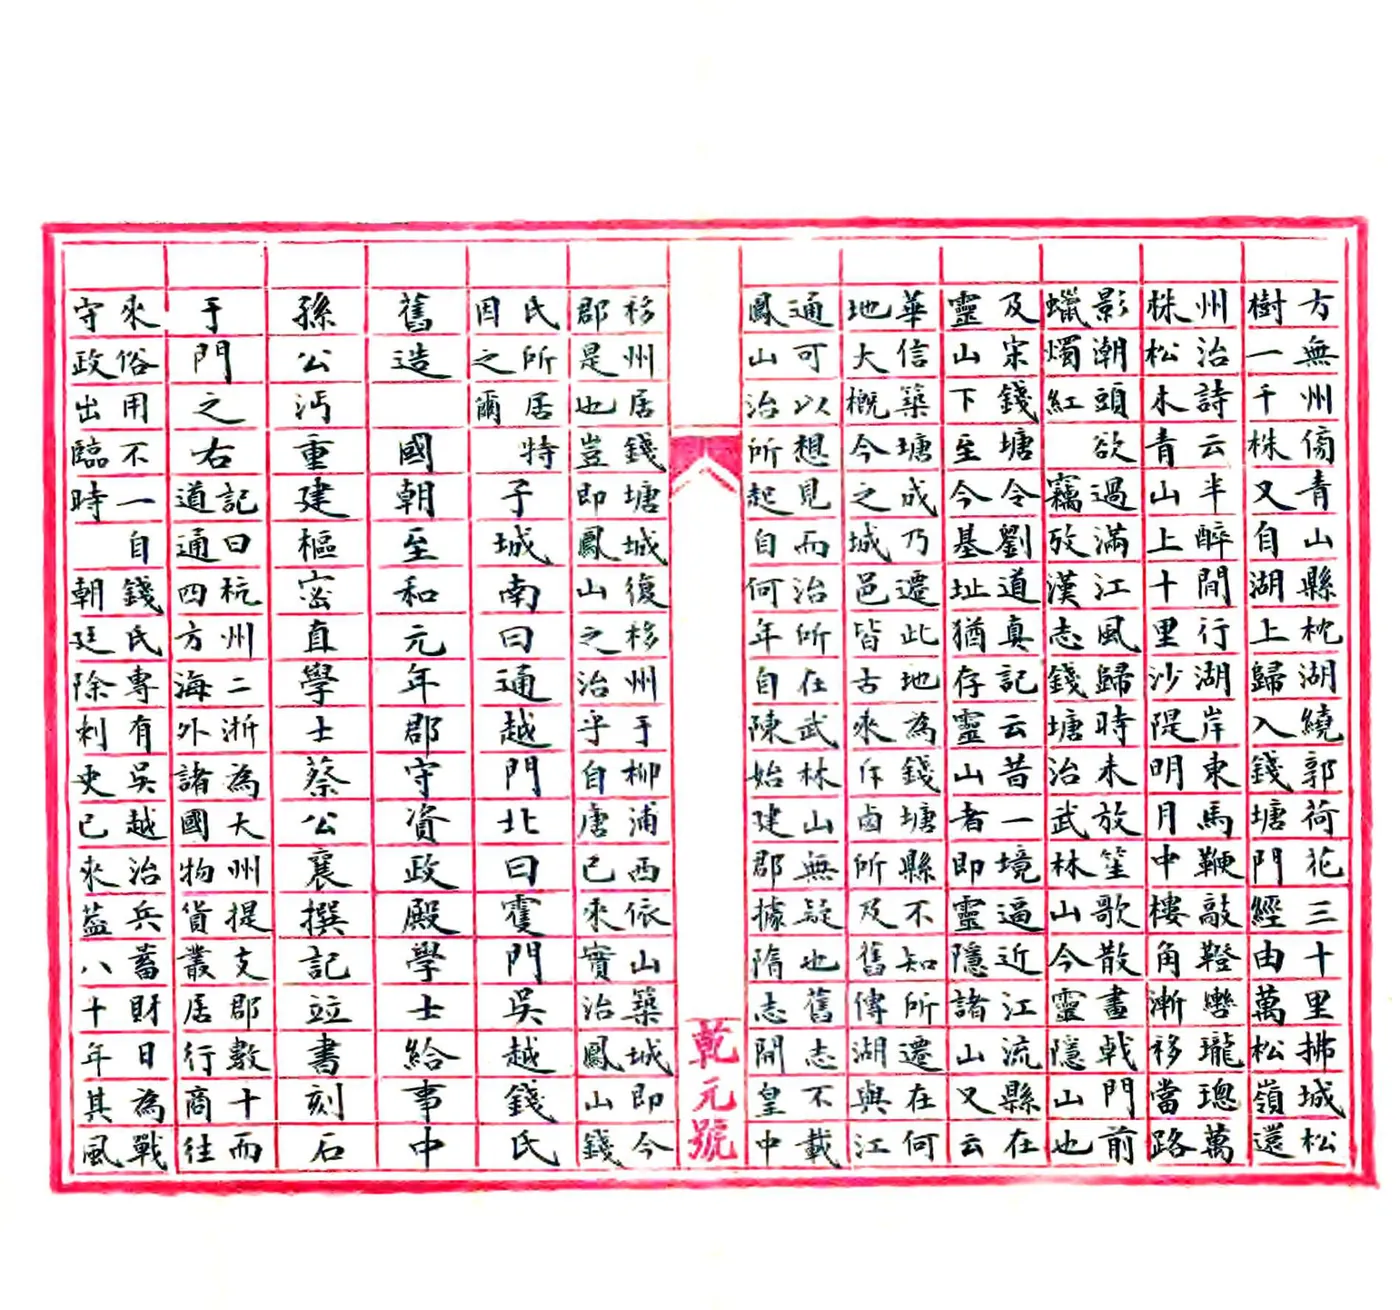 方無州傍青山縣枕湖繞郭荷花三十里拂城松
樹一千株又自湖上歸入錢塘門經由萬松嶺還
州治詩云半醉閒行湖岸東馬鞭敲鐙轡瓏璁萬
株松木青山上十里沙隄明月中樓角漸移當路
影潮頭欲過滿江風歸時未放笙歌散畫戟門前
蠟燭紅竊攷漢志錢塘治武林山今靈隱山也
及宋錢塘令劉道真記云昔一境逼近江流縣在
靈山下至今基址猶存靈山者即靈隱諸山又云
華信築塘成乃遷此地為錢塘縣不知所遷在何
地大概今之城邑皆古來斥鹵所及舊傳湖與江
通可以想見而治所在武林山無疑也舊志不載
鳳山治所起自何年自陳始建郡據隋志開皇中
乾元號
移州居錢塘城復移州于柳浦西依山築城即今
郡是也豈即鳳山之治乎自唐已來實治鳳山錢
氏所居特
因之爾
子城南曰通越門北曰雙門吳越錢氏
舊造 國朝至和元年郡守資政殿學士給事中
孫公沔重建樞密直學士蔡公襄撰記竝書刻石
于門之右
記曰杭州二浙為大州提支郡數十而
道通四方海外諸國物貨叢居行商往
來俗用不一自錢氏專有吳越治兵蓄財日為戰
守政出臨時 朝廷除刺史已來葢八十年其風